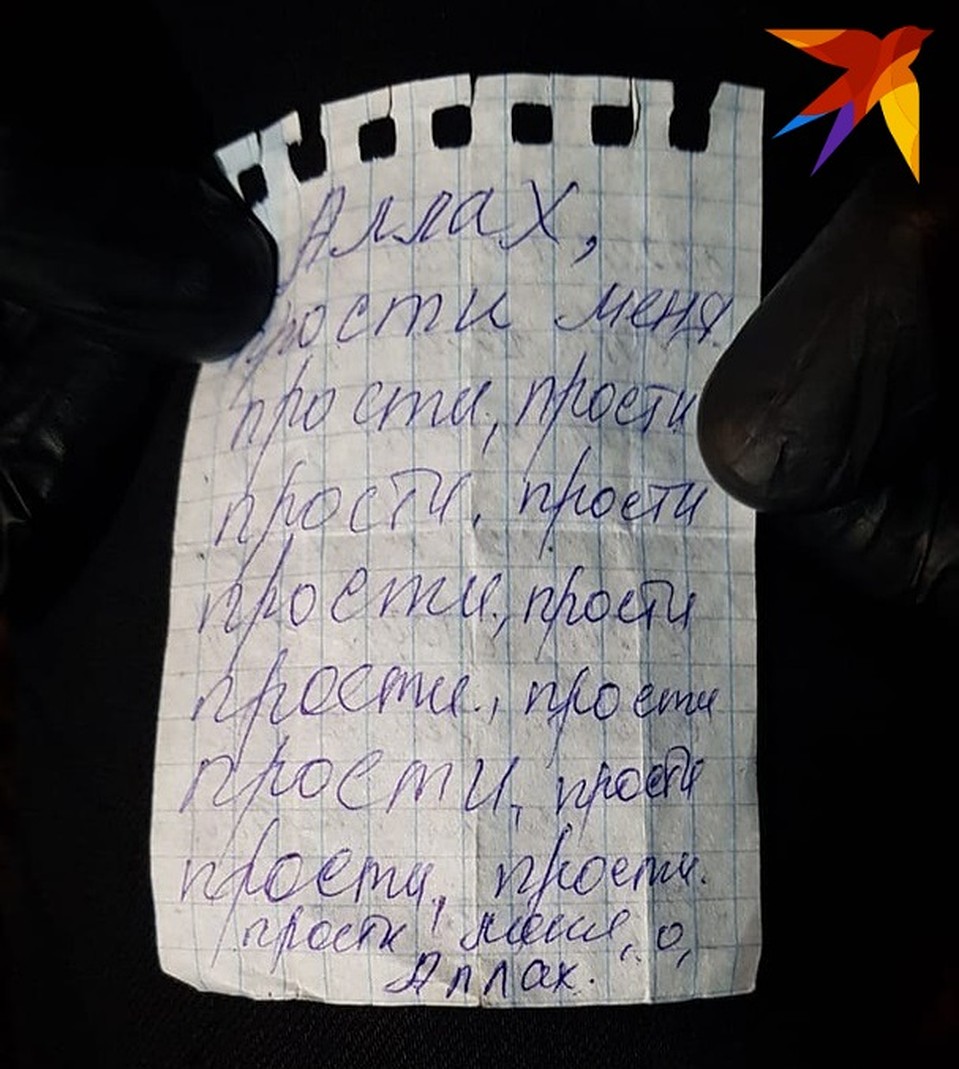 Аллах,
прости меня
прости, прости
прости, прости
прости, прости
прости, прости
прости, прости
прости, прости.
прости меня, о,
Аллах.